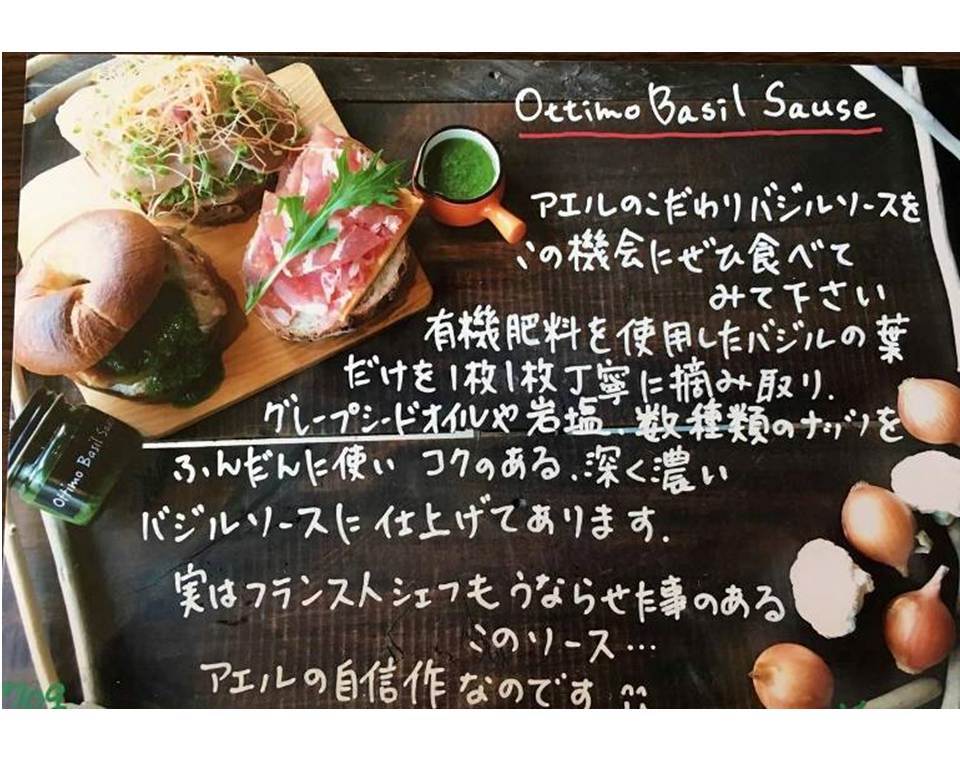 Ottimo Basil Sause
アエルのこだわりバジルソースを
この機会にぜひ食べて
みて下さい
有機肥料を使用したバジルの葉
だけを1枚1枚丁寧に摘み取り.
グレープシードオイルや岩塩、数種類のナッツを
ふんだんに使い コクのある、深く濃い
バジルソースに仕上げてあります.
実はフランス人シェフもうならせた事のある
このソース…
アエルの自信作なのです ^^
Ottimo Basil